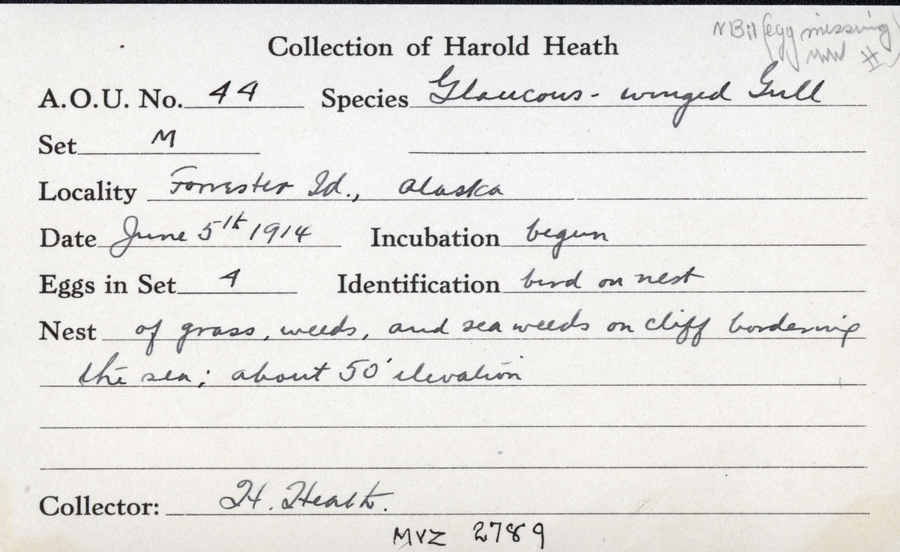 (egg missing)
Collection of Harold Heath
A.O.U. No. 44 Species Glaucous-winged Gull
Set M
Locality Forrester Id., Alaska
Date June 5th 1914 Incubation begun
Eggs in Set 4 Identification bird on nest
Nest of grass, weeds, and sea weeds on cliff bordering
the sea; about 50' elevation
Collector: H. Heath.
MVZ 2789